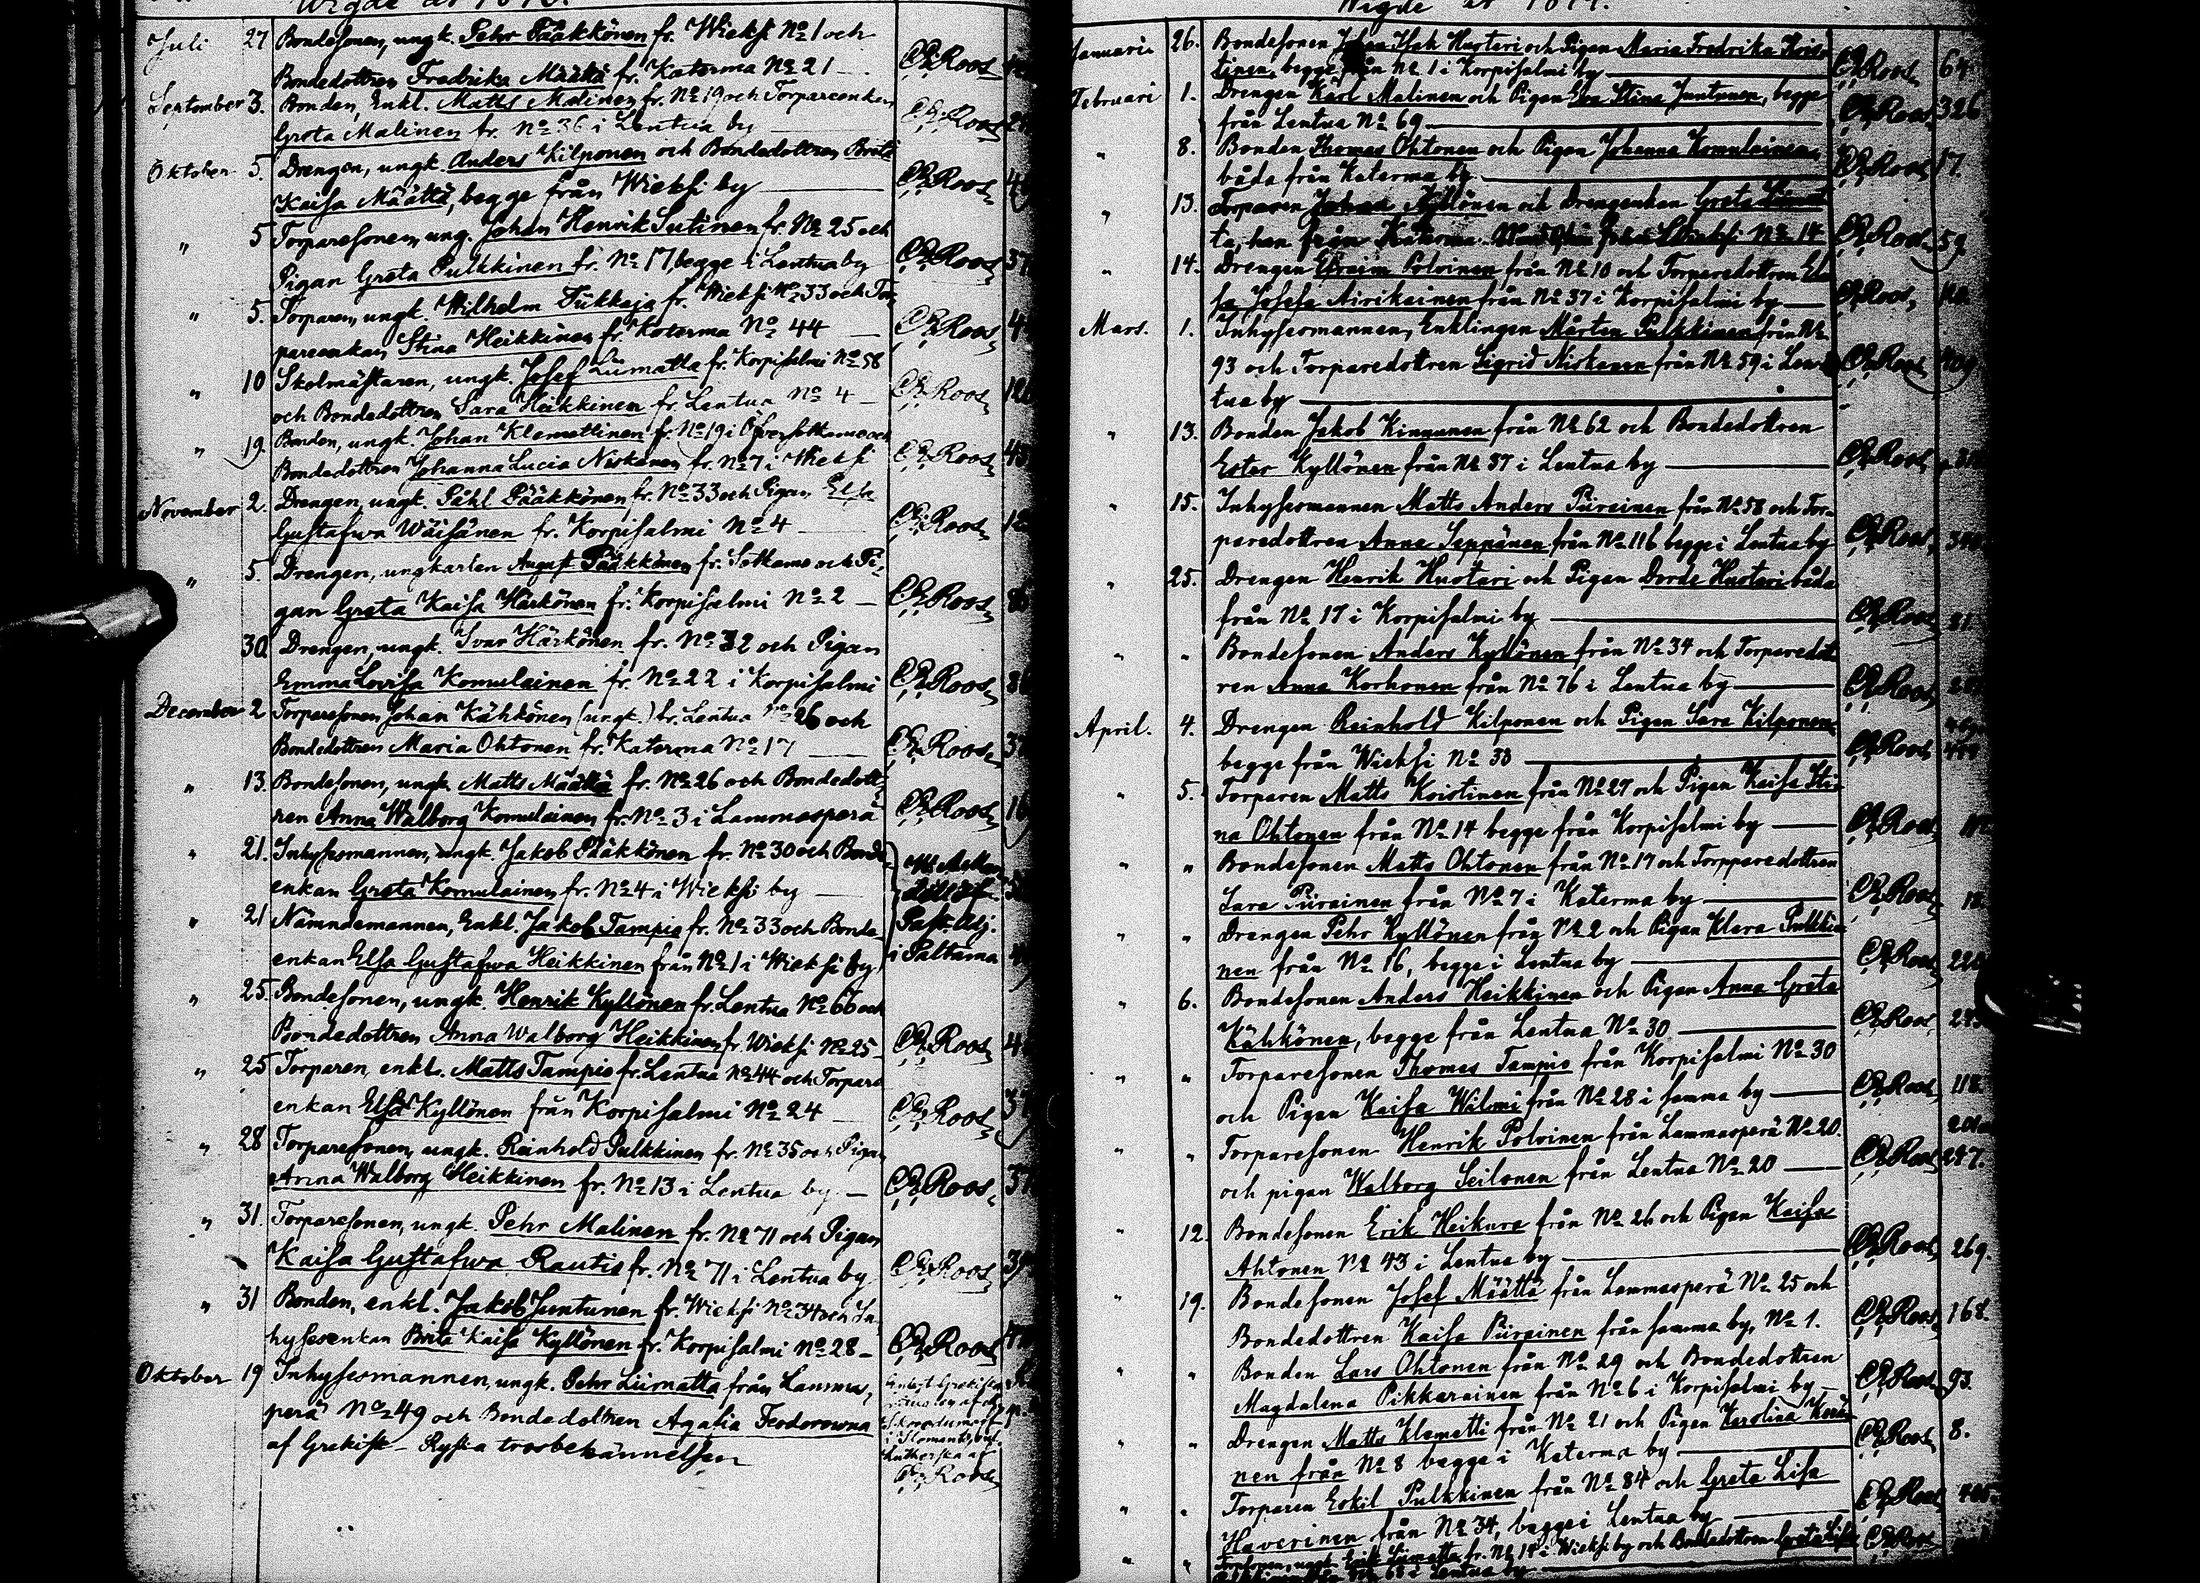 Juli 27 Bondesonen, ungk. Pehr Pääkkönen fr. Wieksi No 1 och
Bondedottren Fredrika Määttä fr. Katerma No 21 CRRoos
September 3. Bonden, Enkl. Matts Malinen fr. No 19 och Torpareenkan
Greta Malinen fr. No 36 i Lentua by CRRoos
Oktober 5. Drengen, ungk. Anders Kilponen och Bondedottren Brita
Kaisa Määttä, begge från Wieksi by CRRoos
" 5 Torparesonen, ung. Johan Henrik Sutinen fr. No 25 och
Pigan Greta Pulkkinen fr. No 17, begge i Lentua by CRRoos
" 5. Torparen, ungk. Wilhelm Tükkaja fr. Wieksi No 33 och Tor-
pareenkan Stina Heikkinen fr. Katerma No 44 CRRoos
" 10 Skolmästaren, ungk. Josef Liimatta fr. Korpisalmi No 58
och Bondedottren Sara Heikkinen fr. Lentua No 4 CRRoos
" 19. Bonden, ungk. Johan Klemettinen fr. No 19 i Öfversotkamo och
Bondedottren Johanna Lucia Niskanen fr. No 7 i Wieksi CRRoos
November 2. Drengen, ungk. Påhl Pääkkönen fr. No 33 och Pigan Elsa
Gustafwa Wäisänen fr. Korpisalmi No 4 CRRoos
" 5. Drengen, ungkarlen August Pääkkönen fr. Sotkamo och Pi-
gan Greta Kaisa Härkönen fr. Korpisalmi No 2 CRRoos
30. Drengen, ungk. Ivar Härkönen fr. No 32 och Pigan
Emma Lovisa Komulainen fr. No 22 i Korpisalmi CRRoos
December 2 Torparesonen Johan Kähkönen (ungk.) fr. Lentua No 26 och
Bondedottren Maria Ohtonen fr. Katerma No 17 CRRoos
" 13. Bondesonen, ungk. Matts Määttä fr. No 26 och Bondedott-
ren Anna Walborg Komulainen fr. No 3 i Lammasperä CRRoos
" 21. Inhysesmannen, ungk. Jakob Pääkkönen fr. No 30 och Bonde-
enkan Greta Komulainen fr. No 4 i Wieksi by
" 21 Nämndemannen, Enkl. Jakob Tampio fr. No 33 och Bonde- Past. Adj.
enkan Elsa Gustafwa Heikkinen från No 1 i Wieksi by i Paltamo
" 25. Bondesonen, ungk. Henrik Kyllönen fr. Lentua No 66 och
Bondedottren Anna Walborg Heikkinen fr. Wieksi No 25 CRRoos
" 25 Torparen, enkl. Matts Tampio fr. Lentua No 44 och Torpare-
enkan Elsa Kyllönen från Korpisalmi No 24 CRRoos
" 28 Torparesonen, ungk. Reinhold Pulkkinen fr. No 35 och Pigan
Anna Walborg Heikkinen fr. No 13 i Lentua by CRRoos
" 31. Torparesonen, ungk. Pehr Malinen fr. No 71 och Pigan
Kaisa Gustafwa Rautio fr. No 71 i Lentua by CRRoos
" 31 Bonden, enkl. Jakob Juntunen fr. Wieksi No 34 och In-
hysesenkan Brita Kaisa Kyllönen fr. Korpisalmi No 28 CRRoos
Oktober 19 Inhysesmannen, ungk. Pehr Liimatta från Lammas-
perä No 49 och Bondedottren Agafia Feodorowna
af Grekisk-Ryska trosbekännelsen CRRoos
Wigde år
Januari 26. Bondesonen Johan Isak Huotari och Pigan Maria Fredrika Kris-
tinen, begge från No 1 i Korpisalmi by CRRoos 64
Februari 1. Drengen Karl Malinen och Pigan Eva Stina Juntunen, begge
från Lentua No 69 CRRoos 326
" 8. Bonden Thomas Ohtonen och Pigan Johanna Komulainen,
båda från Katerma by CRRoos 17.
" 13. Torparen Johan Kyllönen och Drengenkan Greta Liimat-
ta, han från Katerma No 14 CRRoos 59
" 14. Drengen Efraim Polvinen från No 10 och Torparedottren El-
sa Josefa Airikainen från No 37 i Korpisalmi by CRRoos
Mars. 1. Inhysesmannen, Enklingen Mårten Pulkkinen från No
93 och Torparedottren Sigrid Niskanen från No 59 i Len- CRRoos
tua by
" 13. Bonden Jakob Kinnunen från No 62 och Bondedottren
Ester Kyllönen från No 37 i Lentua by CRRoos
" 15. Inhysesmannen Matts Anders Piirainen från No 58 och Tor-
paredottren Anna Seppänen från No 116 begge i Lentua by CRRoos
" 25. Drengen Henrik Huotari och Pigan Dorde Huotari båda
från No 17 i Korpisalmi by CRRoos 81
" " Bondesonen Anders Kyllönen från No 34 och Torparedott-
ren Anna Korhonen från No 76 i Lentua by CRRoos
April. 4. Drengen Reinhold Kilponen och Pigan Sara Kilponen,
begge från Wieksi No 30 CRRoos
" 5. Torparen Matts Kristinen från No 27 och Pigan Kaisa Sti-
na Ohtonen från No 14 begge från Korpisalmi by CRRoos
" " Bondesonen Matts Ohtonen från No 17 och Torpparedottren
Sara Piirainen från No 7 i Katerma by CRRoos 18
" " Drengen Pehr Kyllönen från No 2 och Pigan Klara Pulkki-
nen från No 16, begge i Lentua by CRRoos
" 6. Bondesonen Anders Heikkinen och Pigan Anna Greta
Kähkönen, begge från Lentua No 30 CRRoos
" " Torparesonen Thomas Tampio från Korpisalmi No 30
och Pigan Kaisa Wilmi från No 28 i samma by CRRoos 118
" " Torparesonen Henrik Polvinen från Lammasperä No 20.
och pigan Walborg Seilonen från Lentua No 20 CRRoos 247.
" 12. Bondesonen Erik Heikura från No 26 och Pigan Kaisa
Ahtonen No 43 i Lentua by CRRoos 269.
" 19. Bondesonen Josef Määttä från Lammasperä No 25 och
Bondedottren Kaisa Piirainen från samma by, No 1. CRRoos 168.
" " Bonden Lars Ohtonen från No 29 och Bondedottren
Magdalena Pikkarainen från No 6 i Korpisalmi by CRRoos 93.
" " Drengen Matts Klemetti från No 21 och Pigan Karolina
nen från No 8 begge i Katerma by CRRoos 8.
" " Torparen Eskil Pulkkinen från No 84 och Greta Lisa
Haverinen från No 34, begge i Lentua by CRRoos
" " Torpsonen, ungk. Erik Liimatta fr. No 14 i Wieksi by och Bondedottren Greta Lisa CRRoos